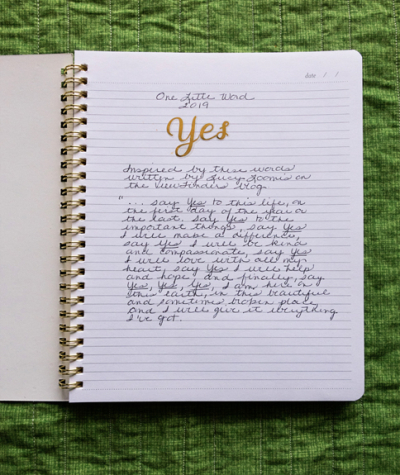 DATE / /
One Little Word
2019
Yes
Inspired by these words
written by Lucy Loomis on
the ViewFinders blog.
"... say Yes to this life, on
the first day of the year or
the last. Say Yes to the
important things, say Yes
I will make a difference,
say Yes I will be kind
and compassionate, say Yes
I will love with all my
heart, say Yes I will help
and hope and finally, say
Yes, Yes, Yes, I am here on
this earth, in this beautiful
and sometimes broken place
and I will give it everything
I've got.